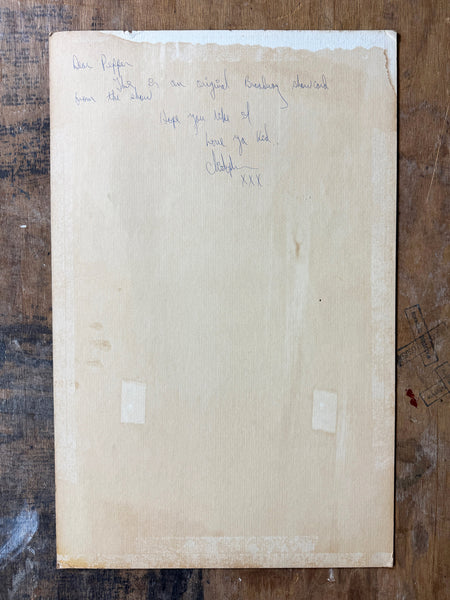 Dear Pepper
This is an original Broadway showcard
from the show
Hope you like it
Love ya kid.
XXX